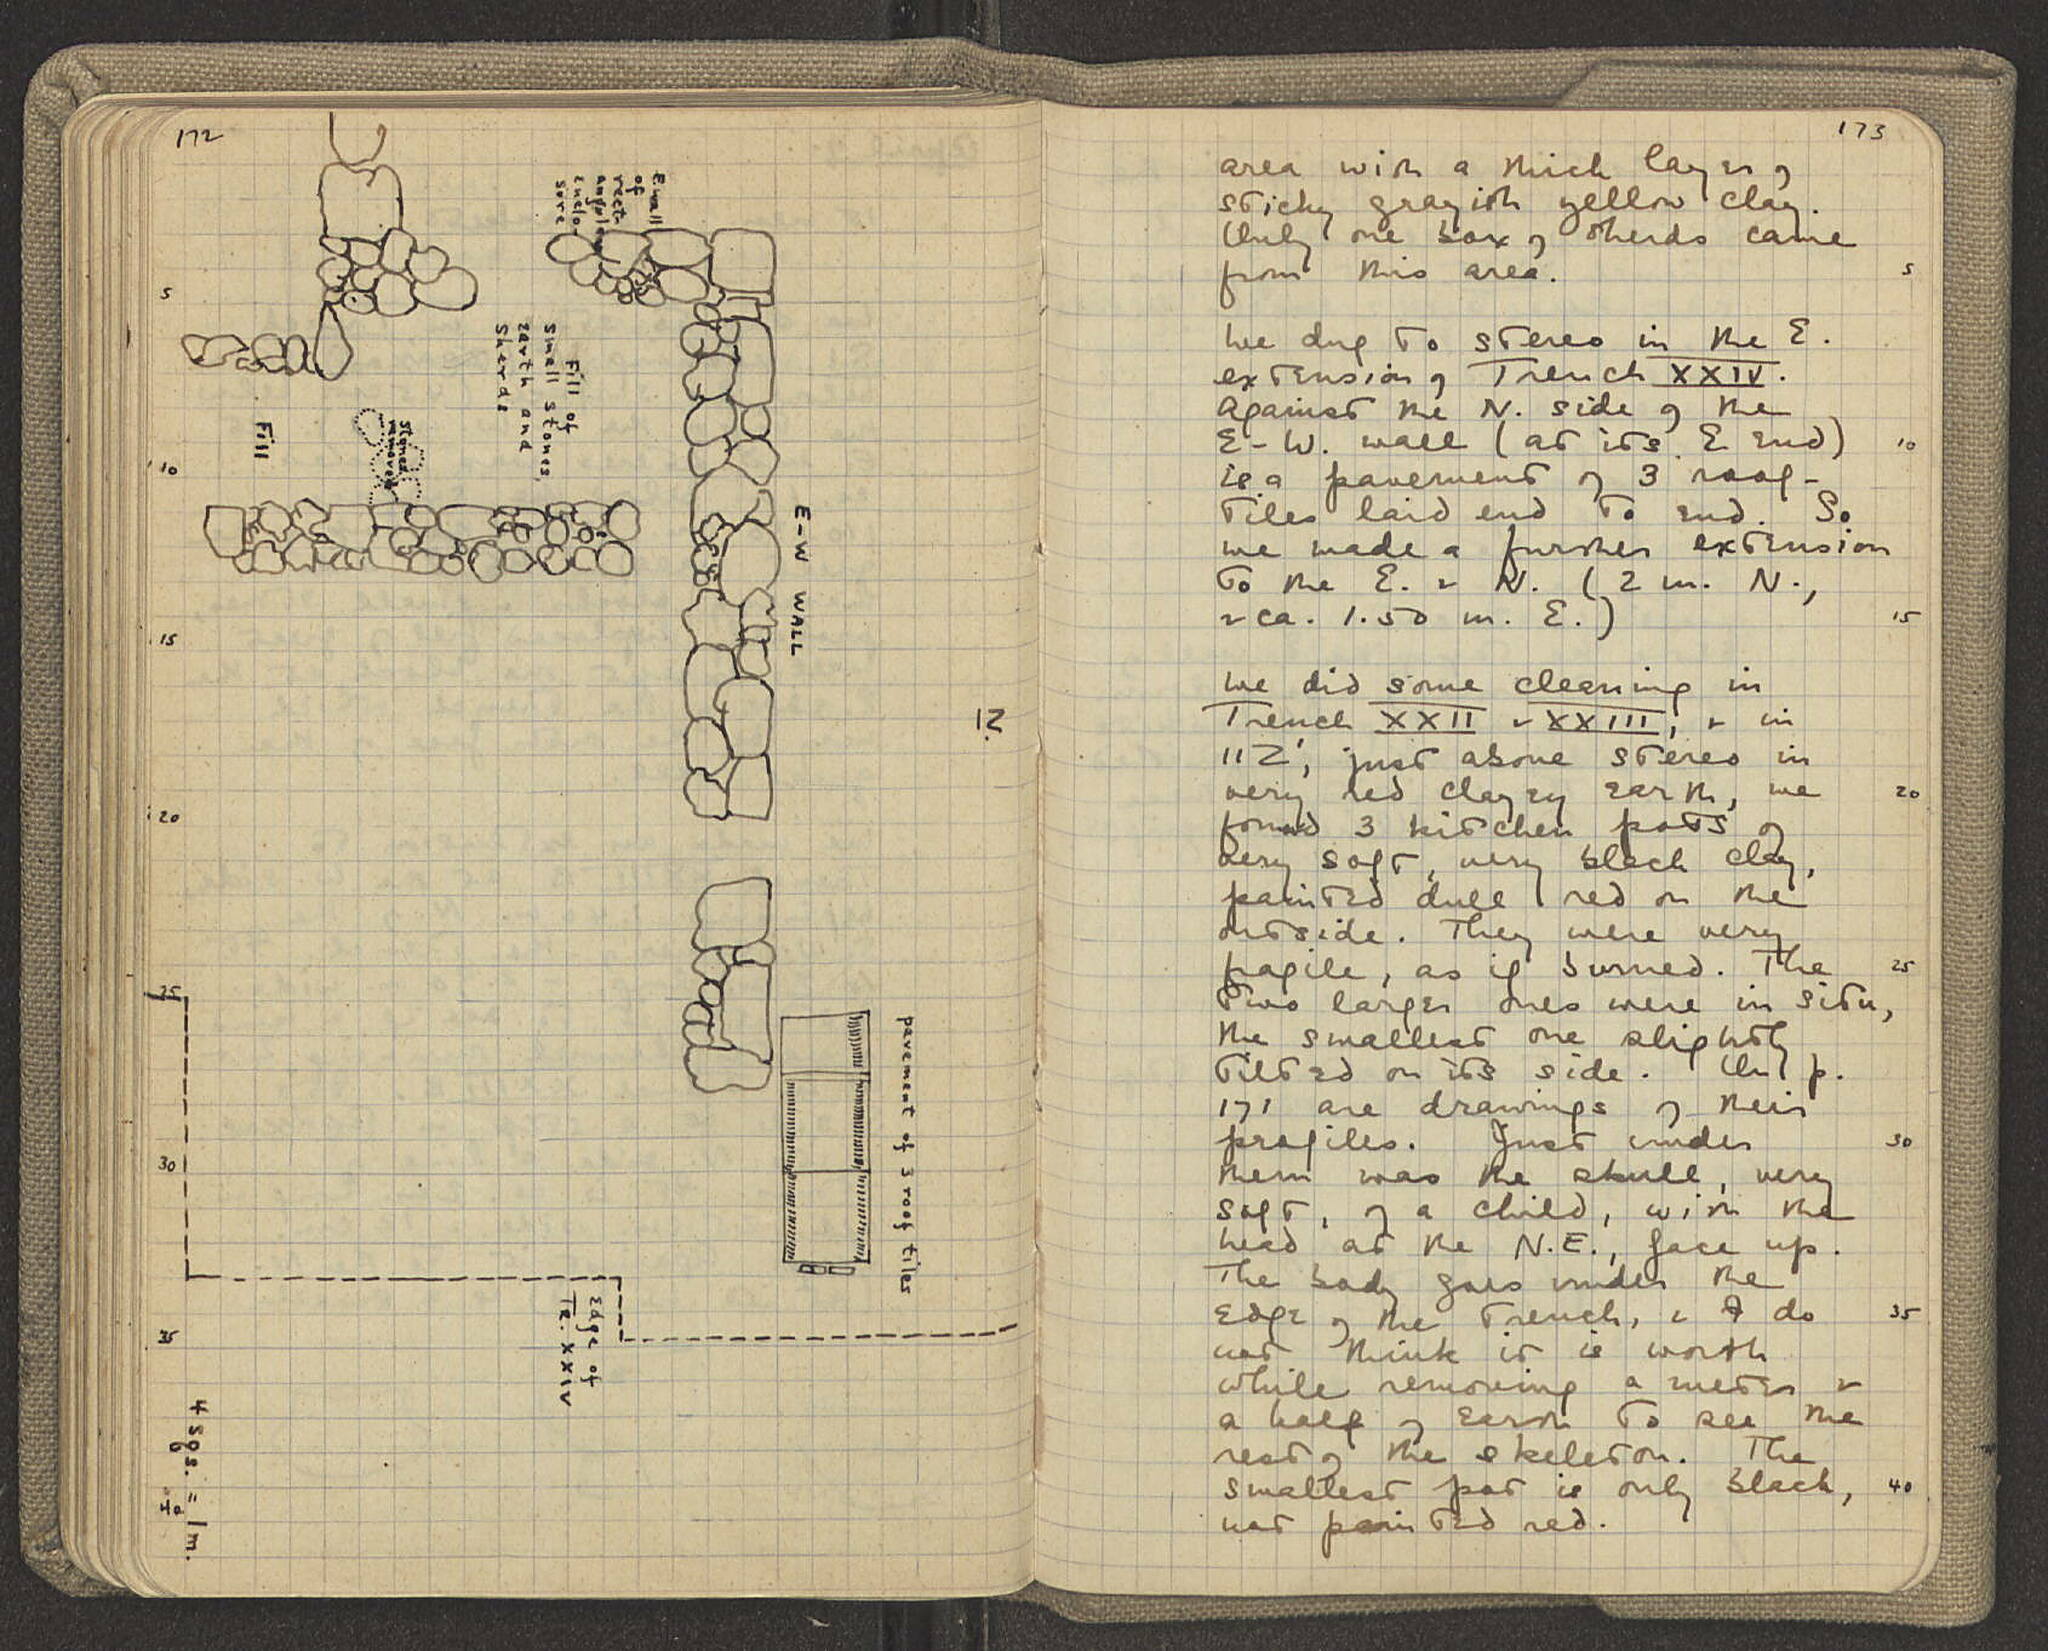 172
E wall
of
rect-
angular
enclo-
sure
5
Fill of
small stones,
earth and
Sherds
Stones
removed
Fill
10
E-W WALL
15
N.
20
25
pavement of 3 roof tiles
30
Edge of
Tr. XXIV
35
4 sqs. = 1 m.
173
area with a thick layer of
sticky grayish yellow clay.
Only one box of sherds came
from this area.
5
We dug to stereo in the E.
extension of Trench XXIV.
Against the N. side of the
E-W. wall (at its E end)
10
is a pavement of 3 roof-
tiles laid end to end. So
we made a further extension
to the E. & N. (2 m. N.,
& ca. 1.50 m. E.)
15
We did some cleaning in
Trench XXII & XXIII, & in
112', just above stereo in
very red clayey earth, we
20
found 3 kitchen pots of
very soft, very black clay,
painted dull red on the
outside. They were very
fragile, as if burned. The
25
two larger ones were in situ,
the smallest one slightly
tilted on its side. On p.
171 are drawings of their
profiles. Just under
30
them was the skull, very
soft, of a child, with the
head at the N.E., face up.
The body goes under the
edge of the trench, & I do
35
not think it is worth
while removing a meter &
a half of earth to see the
rest of the skeleton. The
smallest pot is only black,
40
not painted red.